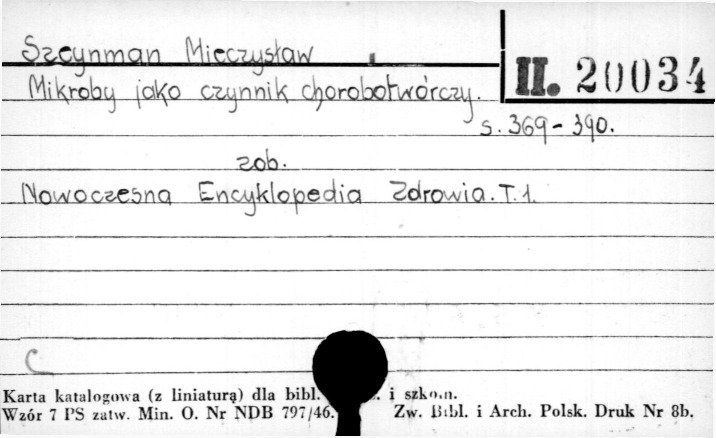 Szeynman Mieczysław
II. 20034
Mikroby jako czynnik chorobotwórczy.
s. 369-390.
zob.
Nowoczesna Encyklopedia Zdrowia. T. 1.
C
Karta katalogowa (z liniaturą) dla bibl. i szkoln.
Wzór 7 PS zatw. Min. O. Nr NDB 797/46. Zw. Bibl. i Arch. Polsk. Druk Nr 8b.